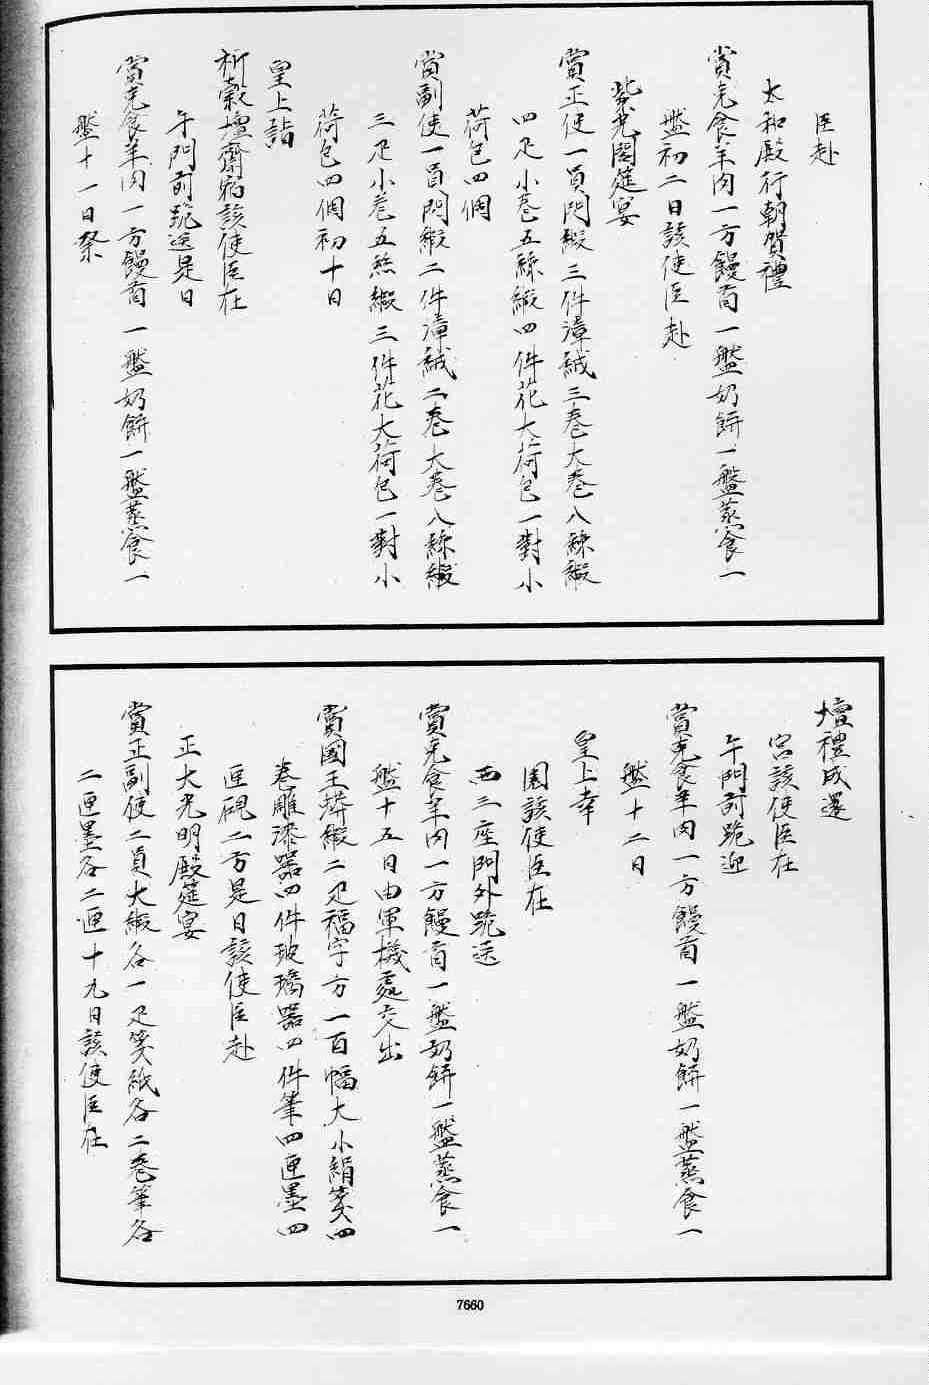 臣赴
太和殿行朝賀禮
賞克食羊肉一方饅首一盤奶餅一盤蒸食一
盤初二日該使臣赴
紫光閣筵宴
賞正使一員閃緞三件漳絨三卷大卷八絲緞
四疋小卷五絲緞四件花大荷包一對小
荷包四個
賞副使一員閃緞二件漳絨二卷大卷八絲緞
三疋小卷五絲緞三件花大荷包一對小
荷包四個初十日
皇上詣
祈穀壇齋宿該使臣在
午門前跪送是日
賞克食羊肉一方饅首一盤奶餅一盤蒸食一
盤十一日祭
壇禮成還
宮該使臣在
午門前跪迎
賞克食羊肉一方饅首一盤奶餅一盤蒸食一
盤十二日
皇上幸
園該使臣在
西三座門外跪送
賞克食羊肉一方饅首一盤奶餅一盤蒸食一
盤十五日由軍機處交出
賞國王蟒緞二疋福字方一百幅大小絹箋四
卷雕漆器四件玻璃器四件筆四匣墨四
匣硯二方是日該使臣赴
正大光明殿筵宴
賞正副使二員大緞各一疋箋紙各二卷筆各
二匣墨各二匣十九日該使臣在
7660